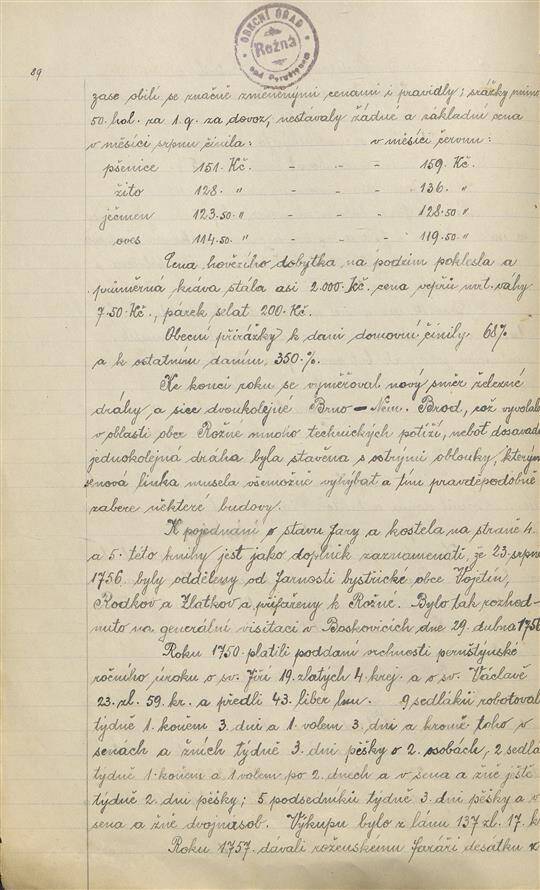 OBECNÍ ÚŘAD
Rožná
nad Pernštýnem
89
zase obilí se značně změněnými cenami i pravidly; srážky mimo
50. hal. za 1. q. za dovoz, nestávaly žádné a základní cena
v měsíci srpnu činila: v měsíci červnu:
pšenice 151. Kč. - - - 159. Kč.
žito 128. " - - - 136. "
ječmen 123.50. " - - - 128.50. "
oves 114.50. " - - - 119.50. "
Cena hovězího dobytka na podzim poklesla a
průměrná kráva stála asi 2.000 Kč. cena vepřů mrt. váhy
7.50 Kč., párek selat 200 Kč.
Obecní přirážky k dani domovní činily 68%
a k ostatním daním 350.%.
Ke konci roku se vyměřoval nový směr železné
dráhy, a sice dvoukolejné Brno - Něm. Brod, což vyvolalo
v oblasti obce Rožné mnoho technických potíží, neboť dosavadní
jednokolejná dráha byla stavěna s ostrými oblouky, kterým
nová linka musela všemožně vyhýbat a tím pravděpodobně
zabere některé budovy.
K pojednání o stavu fary a kostela na straně 4.
a 5. této knihy jest jako doplněk zaznamenati, že 23. srpna
1756. byly odděleny od farnosti bystřické obce Vojetín,
Rodkov a Zlatkov a přifařeny k Rožné. Bylo tak rozhod-
nuto na generální visitaci v Boskovicích dne 29. dubna 1756
Roku 1750. platili poddaní vrchnosti pernštýnské
ročního úroku o sv. Jiří 19. zlatých 4. krej. a o sv. Václavě
23. zl. 59. kr. a předli 43. liber lnu. 9 sedláků robotovalo
týdně 1. koněm 3. dni a 1. volem 3. dni a kromě toho v
senách a žních týdně 3. dni pěšky o 2. osobách, 2 sedláci
týdně 1. koněm a 1 volem po 2. dnech a v sena a žně ještě
týdně 2. dni pěšky; 5 podsedníků týdně 3. dni pěšky a v
sena a žně dvojnásob. Výkupu bylo z lánu 137 zl. 17. k
Roku 1757. dávali roženskému faráři desátku z